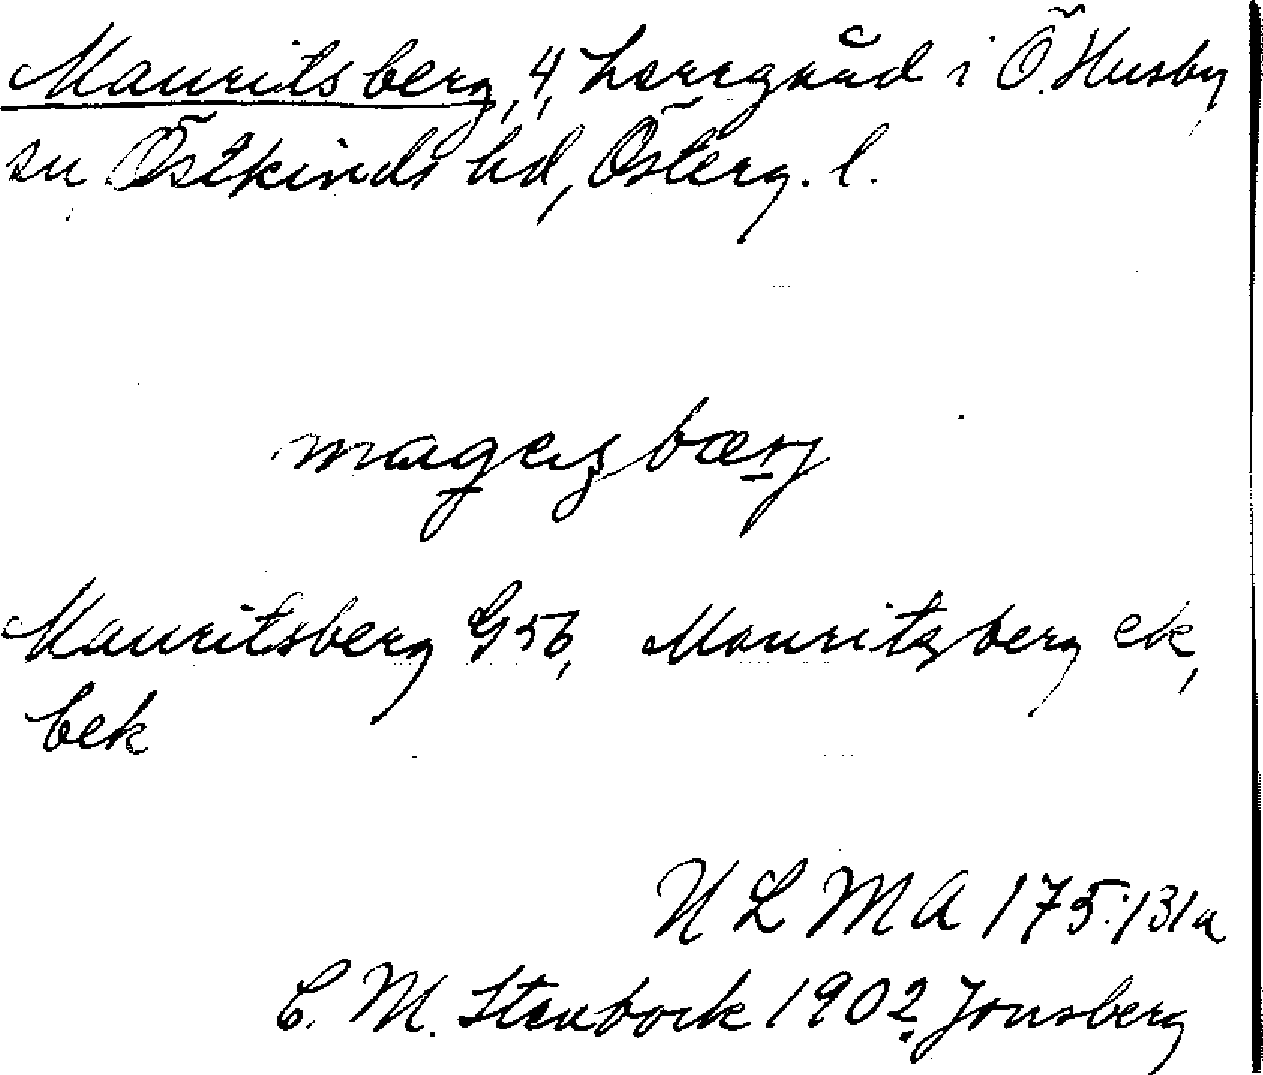 Mauritsberg, 4, herrgård i Ö. Husby
sn Östkinds hd, Österg. l.
Mauritsberg G 56, Mauritzberg ek,
bek
U L M A 175:131a
C. M. Stenbock 1902 Jonsberg